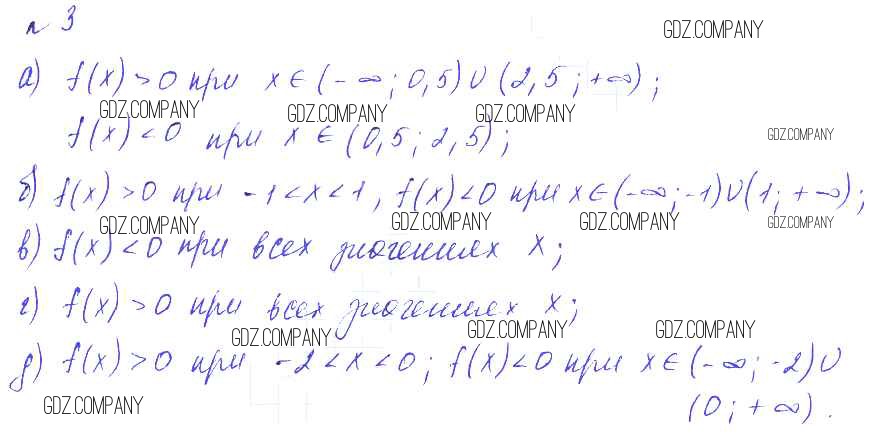 n 3
GDZ.COMPANY
а) f(x) > 0 при x ∈ (- ∞ ; 0,5) ∪ (2,5 ; +∞) ;
GDZ.COMPANY GDZ.COMPANY GDZ.COMPANY
f(x) < 0 при x ∈ (0,5 ; 2,5) ;
GDZ.COMPANY
б) f(x) > 0 при -1 < x < 1 , f(x) < 0 при x ∈ (-∞ ; -1) ∪ (1 ; +∞) ;
GDZ.COMPANY GDZ.COMPANY GDZ.COMPANY GDZ.COMPANY
в) f(x) < 0 при всех значениях x ;
г) f(x) > 0 при всех значениях x ;
GDZ.COMPANY GDZ.COMPANY GDZ.COMPANY
д) f(x) > 0 при -2 < x < 0 ; f(x) < 0 при x ∈ (-∞ ; -2) ∪
GDZ.COMPANY
(0 ; +∞) .